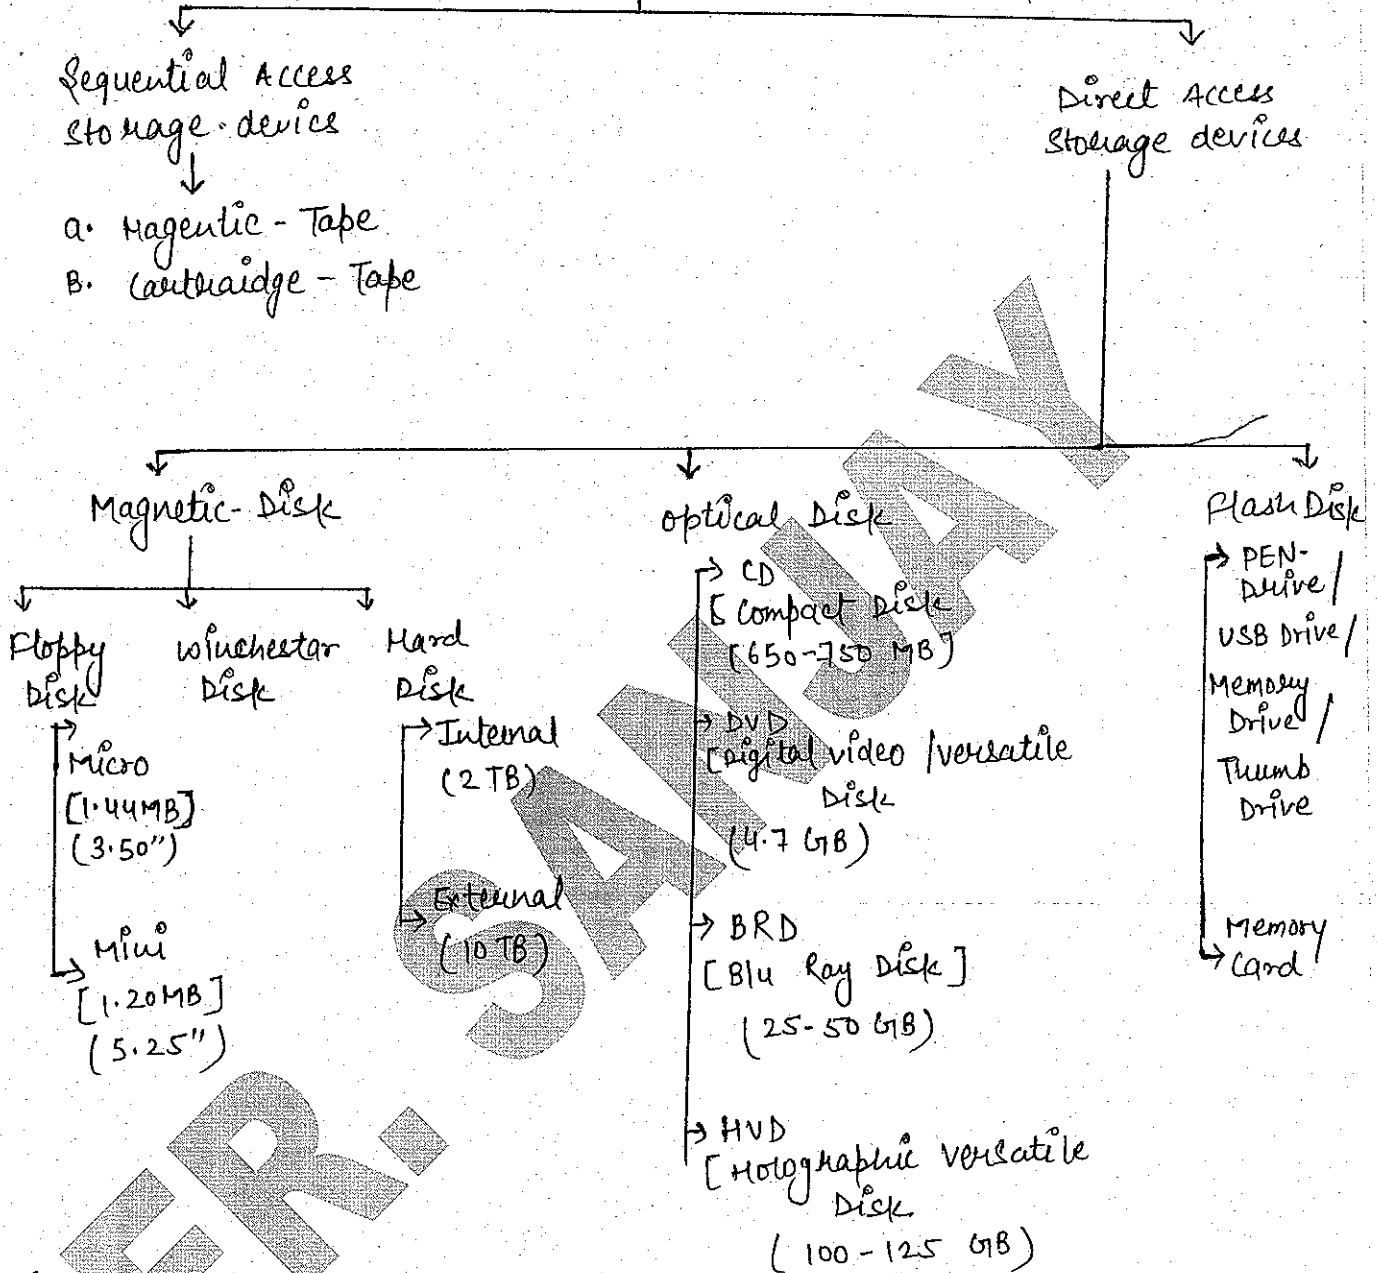 Sequential Access
Storage devices
a. Magentic - Tape
B. Cartraidge - Tape
Direct Access
Storage devices
Magnetic - Disk
Floppy
Disk
Micro
[1.44MB]
(3.50")
Mini
[1.20MB]
(5.25")
winchestar
Disk
Hard
Disk
Internal
(2 TB)
External
(10 TB)
optical Disk
CD
[Compact Disk
[650-750 MB]
DVD
[Digital video /versatile
Disk
(4.7 GB)
BRD
[Blu Ray Disk]
(25-50 GB)
HVD
[Holographic versatile
Disk
(100-125 GB)
Flash Disk
PEN-
Drive/
USB Drive/
Memory
Drive/
Thumb
Drive
Memory
Card
ER. SANJAY